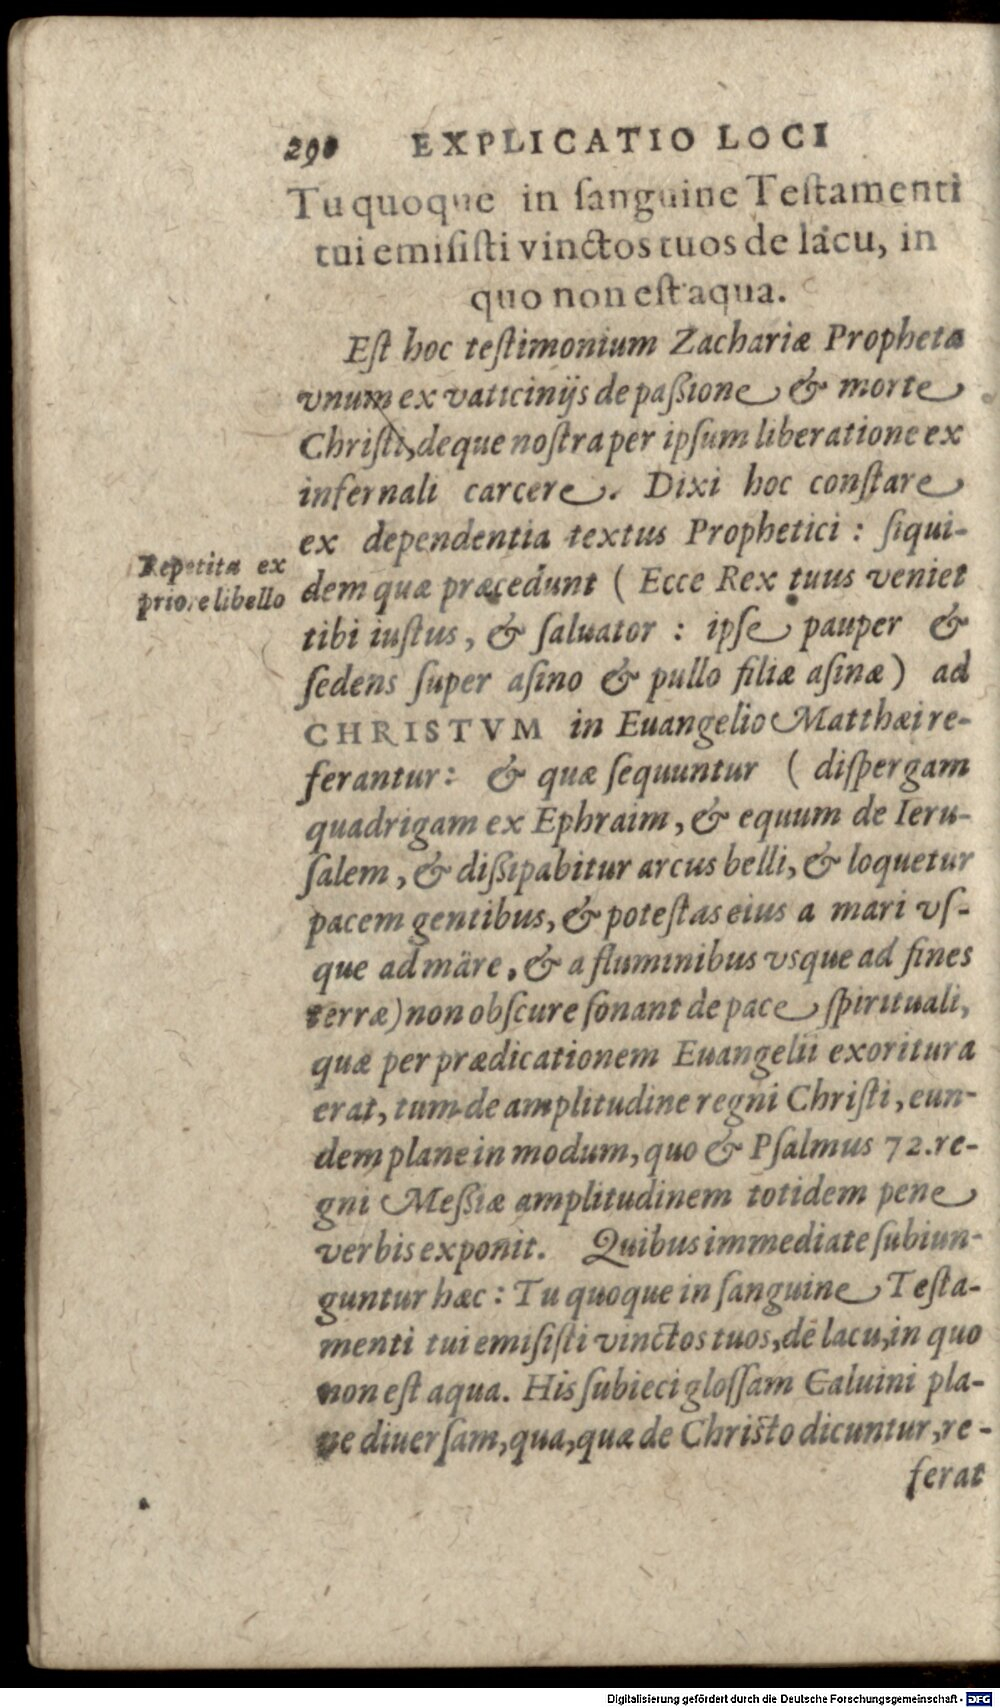 290 EXPLICATIO LOCI
Tu quoque in ſanguine Teſtamenti
tui emiſiſti vinctos tuos de lacu, in
quo non eſt aqua.
Eſt hoc teſtimonium Zachariæ Prophetæ
vnum ex vaticinijs de paßione & morte
Chriſti, deque noſtra per ipſum liberatione ex
infernali carcere. Dixi hoc conſtare
ex dependentia textus Prophetici : ſiqui-
Repetita ex
priore libello
dem quæ præcedunt ( Ecce Rex tuus veniet
tibi iuſtus, & ſaluator : ipſe pauper &
ſedens ſuper aſino & pullo filiæ aſinæ ) ad
CHRISTVM in Euangelio Matthæi re-
ferantur: & quæ ſequuntur ( diſpergam
quadrigam ex Ephraim, & equum de Ieru-
ſalem, & dißipabitur arcus belli, & loquetur
pacem gentibus, & poteſtas eius a mari vſ-
que ad mare, & a fluminibus vsque ad fines
terræ) non obſcure ſonant de pace ſpirituali,
quæ per prædicationem Euangelii exoritura
erat, tum de amplitudine regni Chriſti, eun-
dem plane in modum, quo & Pſalmus 72. re-
gni Meßiæ amplitudinem totidem pene
verbis exponit. Quibus immediate ſubiun-
guntur hæc : Tu quoque in ſanguine Teſta-
menti tui emiſiſti vinctos tuos, de lacu, in quo
non eſt aqua. His ſubieci gloſſam Caluini pla-
ne diuerſam, qua, quæ de Chriſto dicuntur, re-
ferat
Digitalisierung gefördert durch die Deutsche Forschungsgemeinschaft - DFG